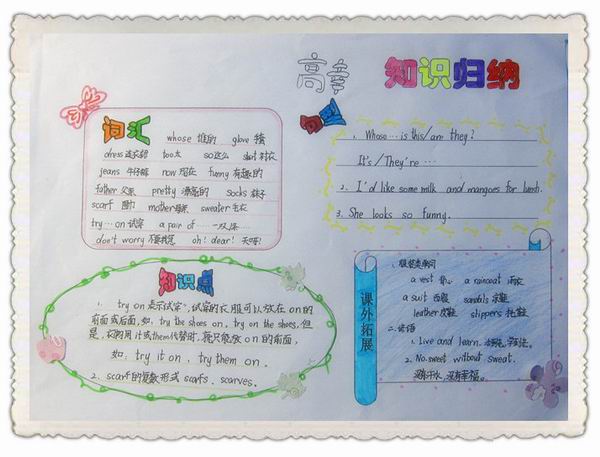 高率 知识归纳
词汇
whose 谁的 glove 手套
dress 连衣裙 too 太 so 这么 shirt 衬衣
jeans 牛仔裤 now 现在 funny 有趣的
father 父亲 pretty 漂亮的 socks 袜子
scarf 围巾 mother 母亲 sweater 毛衣
try…on 试穿 a pair of 一双……
don't worry 不要担心 oh! dear! 天呀!
句型
1. Whose … is this/am they?
It's / They're …
2. I'd like some milk and mangoes for lunch.
3. She looks so funny.
知识点
1. try on 表示"试穿",试穿的衣服可以放在 on 的
前面或后面,如, try the shoes on, try on the shoes. 但
是,衣物用 it 或 them 代替时,就只能放 on 的前面,
如, try it on, try them on.
2. scarf 的复数形式 scarfs, scarves.
课外拓展
1. 服装类单词
a vest 背心 a raincoat 雨衣
a suit 西服 sandals 凉鞋
leather 皮鞋 slippers 拖鞋
2. 谚语
1. Live and learn.
2. No sweet without sweat.
没有汗水,没有幸福。